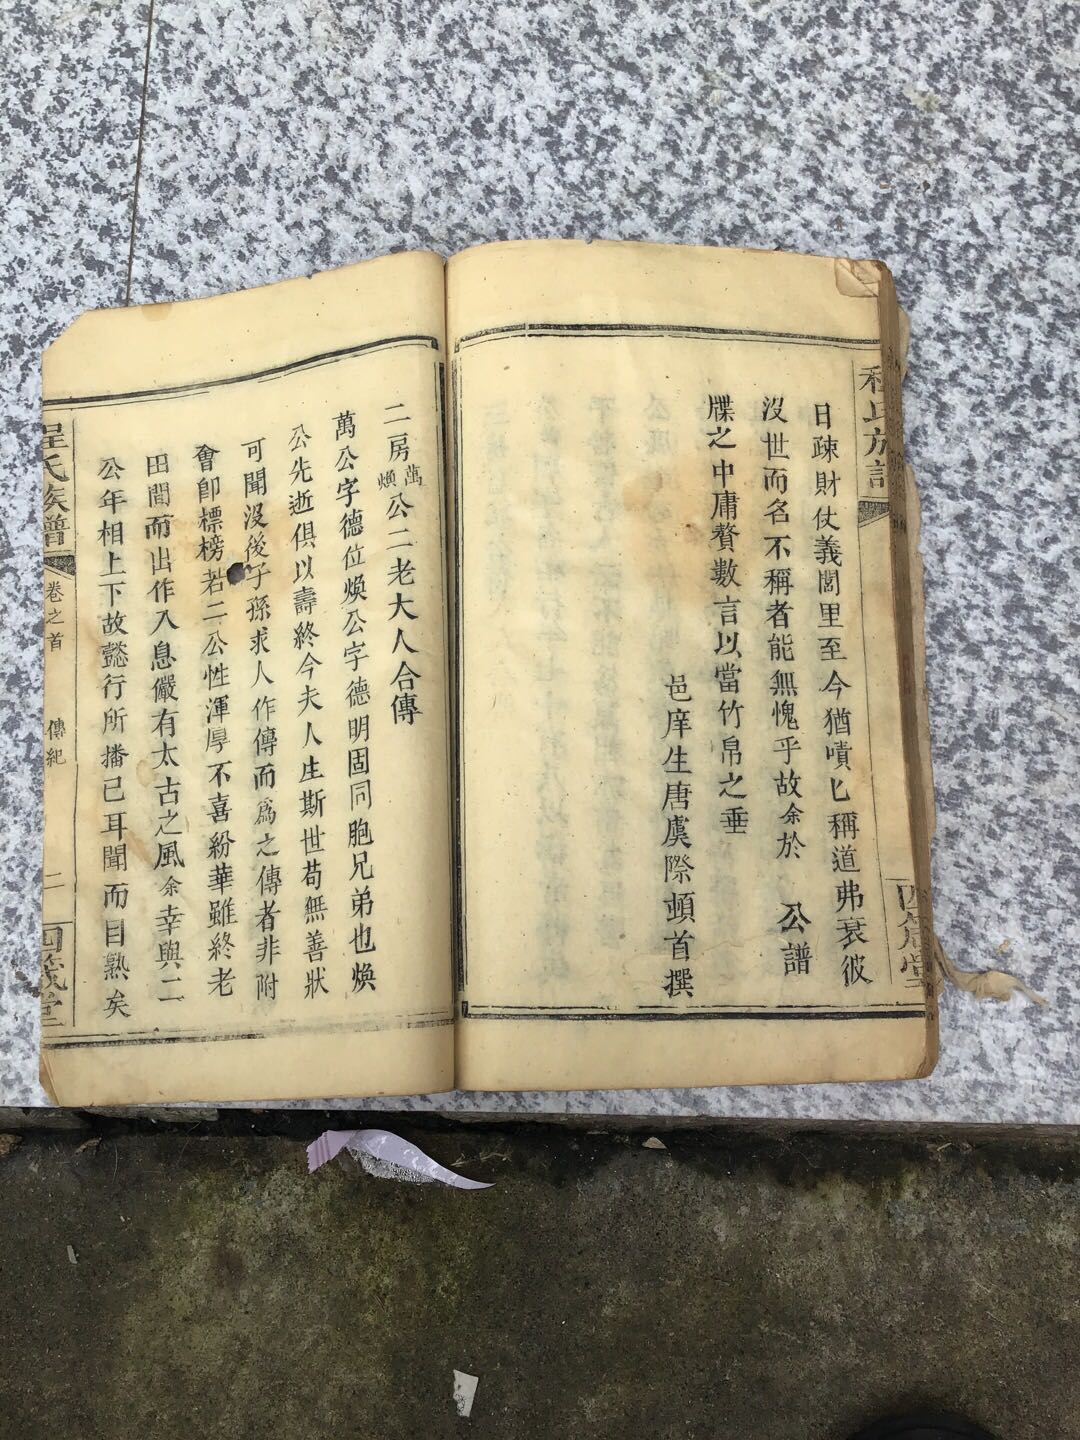 程氏族譜
四箴堂
日疎財仗義閭里至今猶嘖匕稱道弗衰彼
沒世而名不稱者能無愧乎故余於 公譜
牒之中庸贅數言以當竹帛之垂
邑庠生唐虞際頓首撰
二房萬煥公二老大人合傳
萬公字德位煥公字德明固同胞兄弟也煥
公先逝俱以壽終今夫人生斯世苟無善狀
可聞沒後子孫求人作傳而為之傳者非附
會卽標榜若二公性渾厚不喜紛華雖終老
田間而出作入息儼有太古之風余幸與二
公年相上下故懿行所播已耳聞而目熟矣
程氏族譜
卷之首 傳紀 二
四箴堂